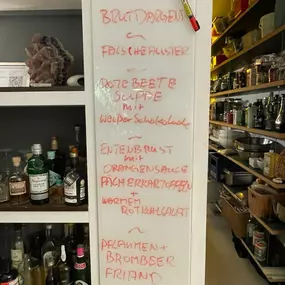 BRUT DARGENT
~
FALSCHE AUSTER
~
ROTE BEETE
SUPPE
mit
weißer Schokolade
~
ENTENBRUST
mit
ORANGENSAUCE
FÄCHERKARTOFFEN
+
WARMEM
ROTKOHLSALAT
~
PFLAUMEN +
BROMBEER
FRIAND